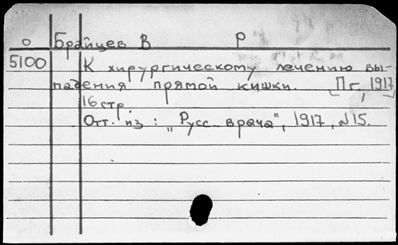 о Брайцев В Р
5100 К хирургическому лечению вы-
падения прямой кишки. [Пг, 1917]
16 стр.
Отт. из: „Русс. врача", 1917, №15.